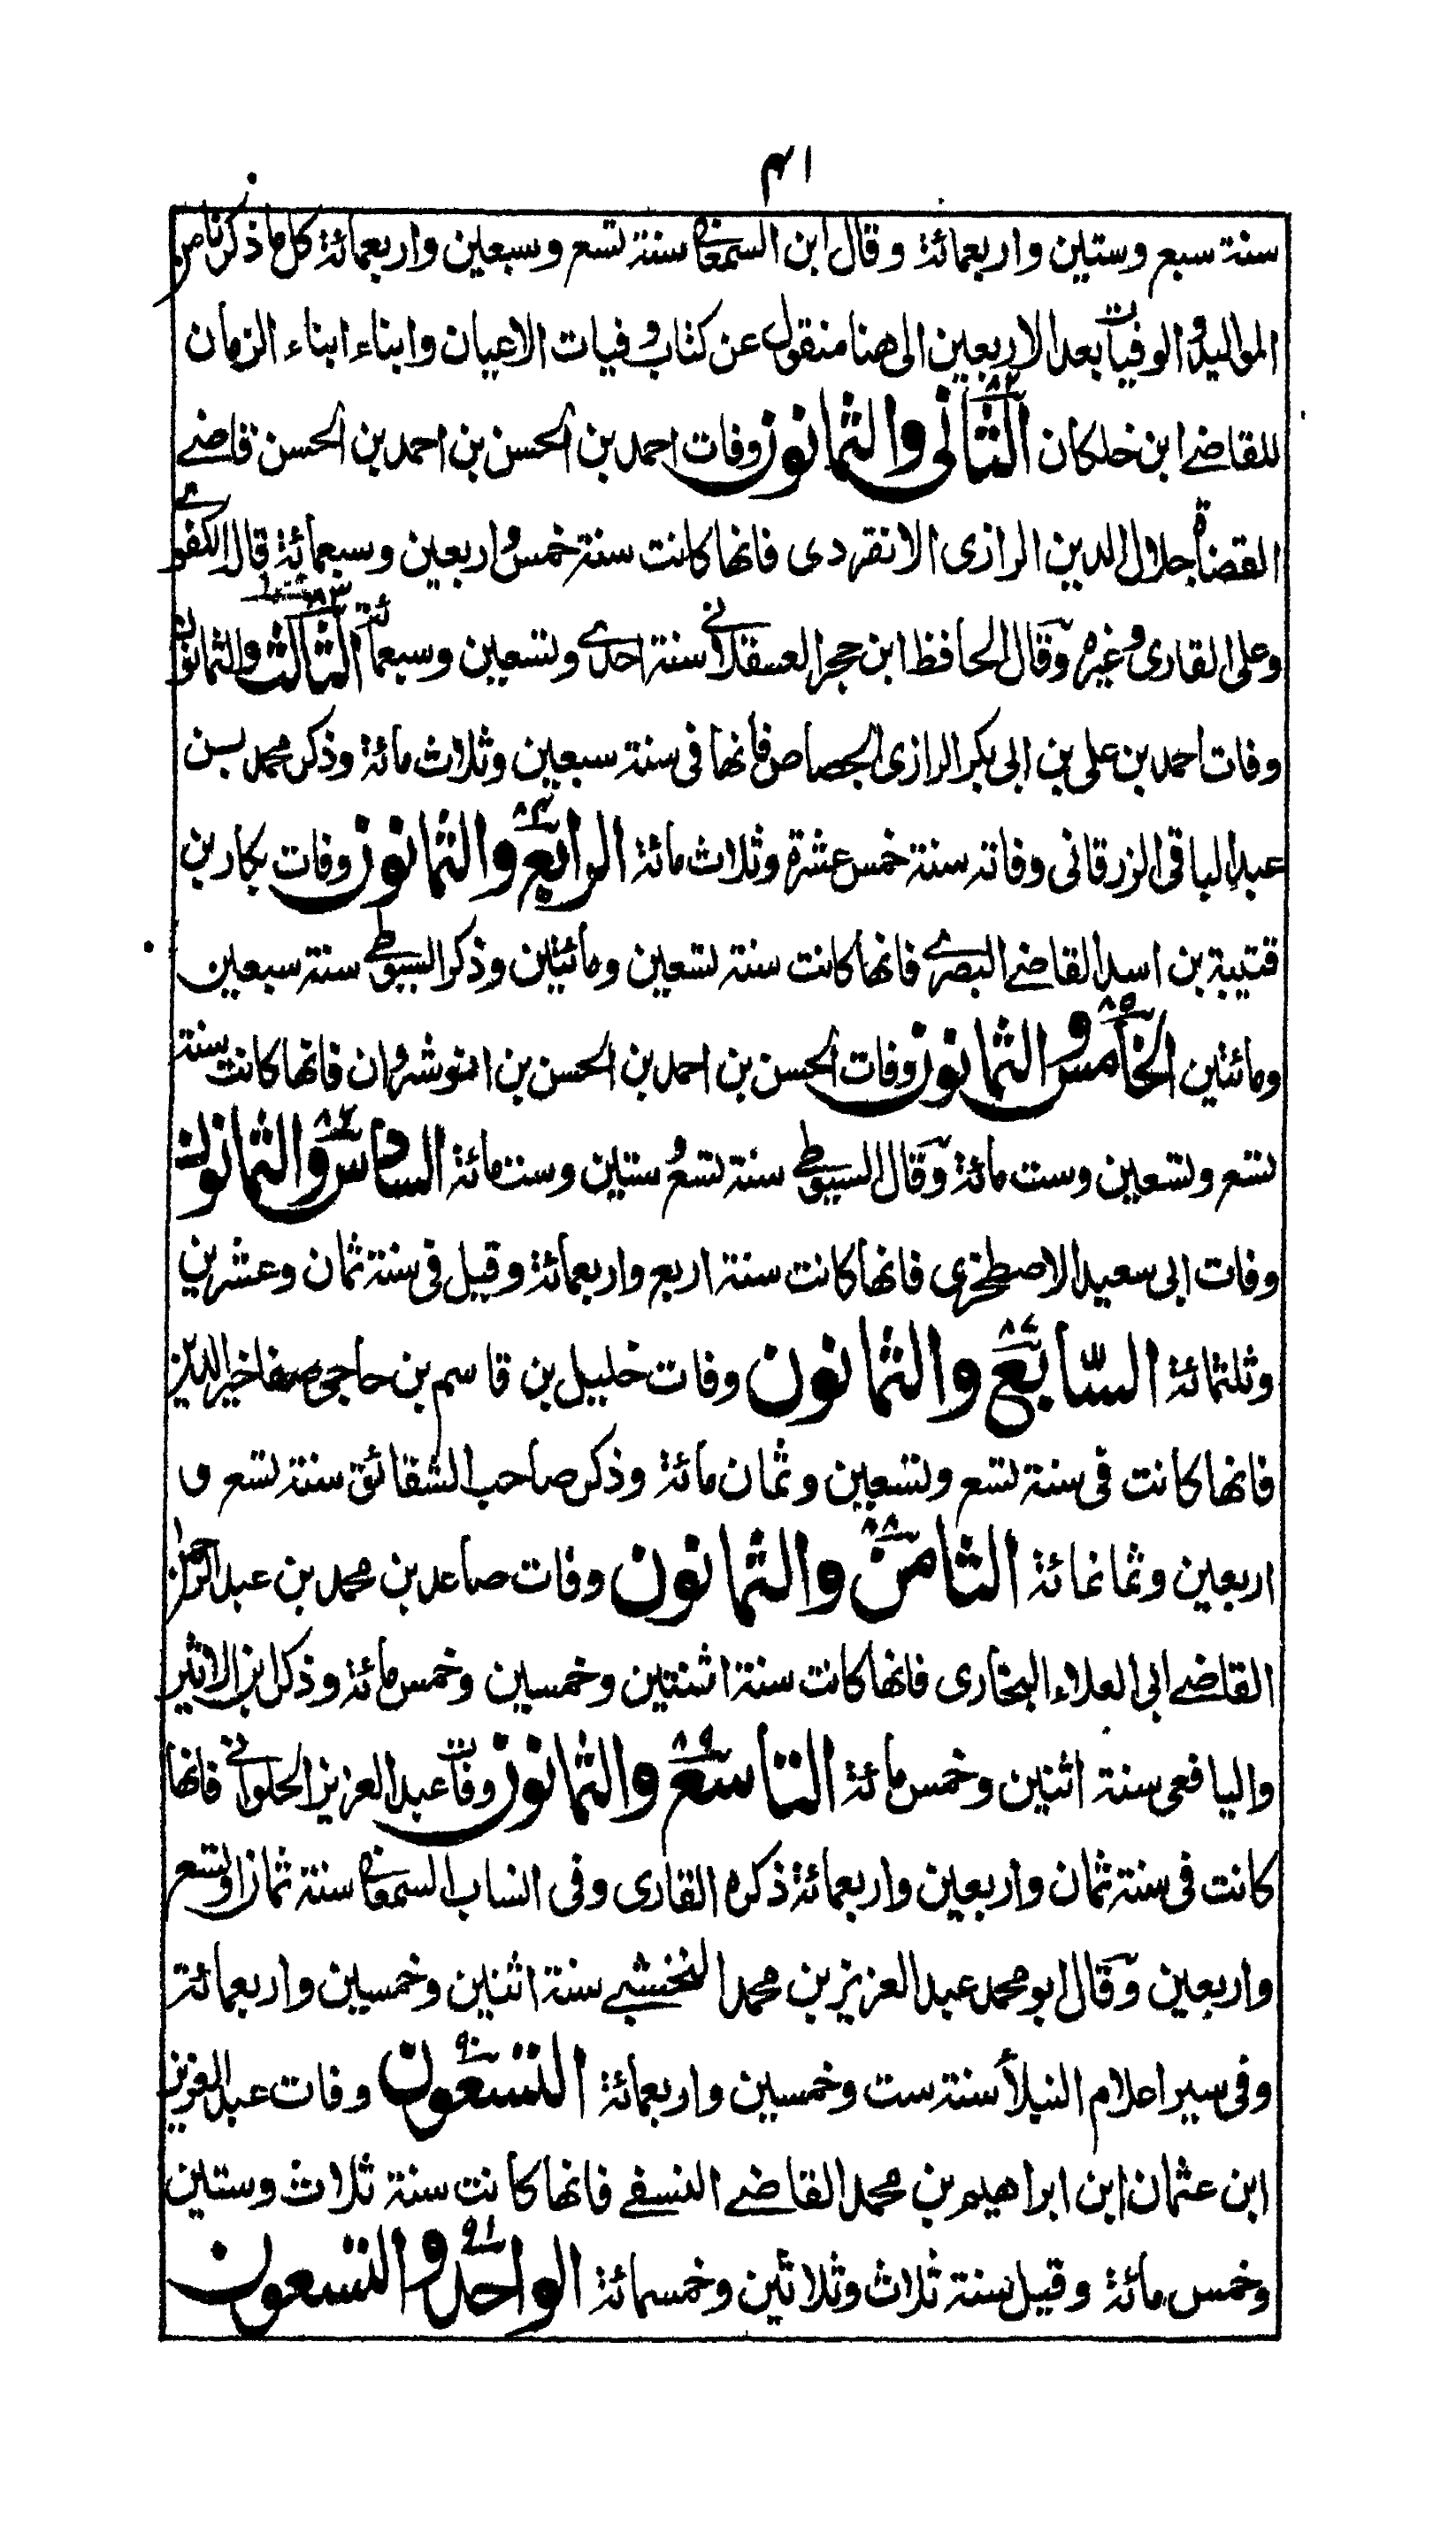 ۴۱
سنة سبع وستين واربعمائة وقال ابن السمعانے سنة تسع وسبعين واربعمائة كل ما ذكرنا من
المواليد والوفيات بعد الاربعين الى هنا منقول عن كتاب وفيات الاعيان وابناء ابناء الزمان
للقاضے ابن خلكان الثانى والثمانون ۸۲ وفات احمد بن الحسن بن احمد بن الحسن قاضے
القضاة جلال الدين الرازى الانقردى فانها كانت سنة خمس واربعين وسبعمائة قال الكفوے
وعلى القارى وغيره وقال الحافظ ابن حجر العسقلانے سنة احدے وتسعين وسبعمائة الثالث والثمانون ۸۳
وفات احمد بن على بن ابى بكر الرازى الجصاص فانها فى سنة سبعين وثلاث مائة وذكر محمد بن
عبد الباقى الزرقانى وفاته سنة خمس عشرة وثلاث مائة الرابع والثمانون ۸۴ وفات بكار بن
قتيبة بن اسد القاضے البصرے فانها كانت سنة تسعين ومائتين وذكر السيوطے سنة سبعين
ومائتين الخامس والثمانون ۸۵ وفات الحسن بن احمد بن الحسن بن انوشروان فانها كانت سنة
تسع وتسعين وست مائة وقال السيوطے سنة تسع وستين وست مائة السادس والثمانون ۸۶
وفات ابى سعيد الاصطخرى فانها كانت سنة اربع واربعمائة وقيل فى سنة ثمان وعشرين
وثلثمائة السابع والثمانون ۸۷ وفات خليل بن قاسم بن حاجى صفا خير الدين
فانها كانت فى سنة تسع وتسعين وثمان مائة وذكر صاحب الشقائق سنة تسع و
اربعين وثمانمائة الثامن والثمانون ۸۸ وفات صاعد بن محمد بن عبد الرحمن
القاضے ابى العلاء البخارى فانها كانت سنة اثنتين وخمسين وخمس مائة وذكر ابن الاثير
واليافعى سنة اثنين وخمس مائة التاسع والثمانون ۸۹ وفات عبد العزيز الحلوانے فانها
كانت فى سنة ثمان واربعين واربعمائة ذكره القارى وفى انساب السمعانے سنة ثمان او تسع
واربعين وقال ابو محمد عبد العزيز بن محمد النخشبے سنة اثنين وخمسين واربعمائة
وفى سير اعلام النبلأ سنة ست وخمسين واربعمائة التسعون ۹۰ وفات عبد العزيز
ابن عثمان ابن ابراهيم بن محمد القاضے النسفے فانها كانت سنة ثلاث وستين
وخمس مائة وقيل سنة ثلاث وثلاثين وخمسمائة الواحد والتسعون ۹۱